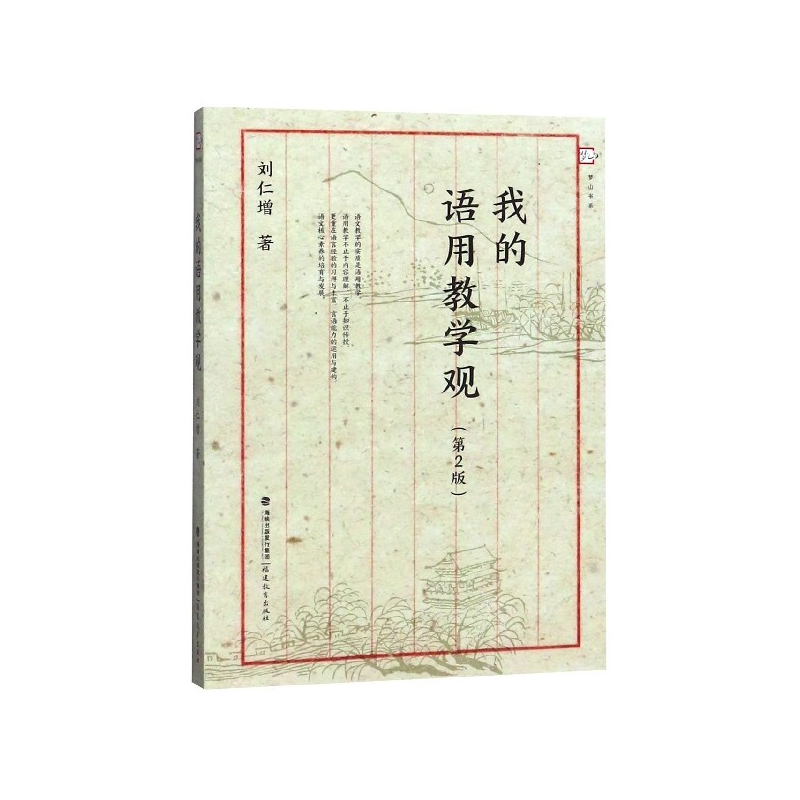 梦山书系
我的
语用教学观
(第2版)
语文教学的实质是语用教学。
语用教学不止于内容理解、不止于知识传授,
更重在语言经验的习得与丰富、言语能力的运用与建构、
语文核心素养的培育与发展。
刘仁增 著
海峡出版发行集团
福建教育出版社
我的语用教学观
刘仁增 著